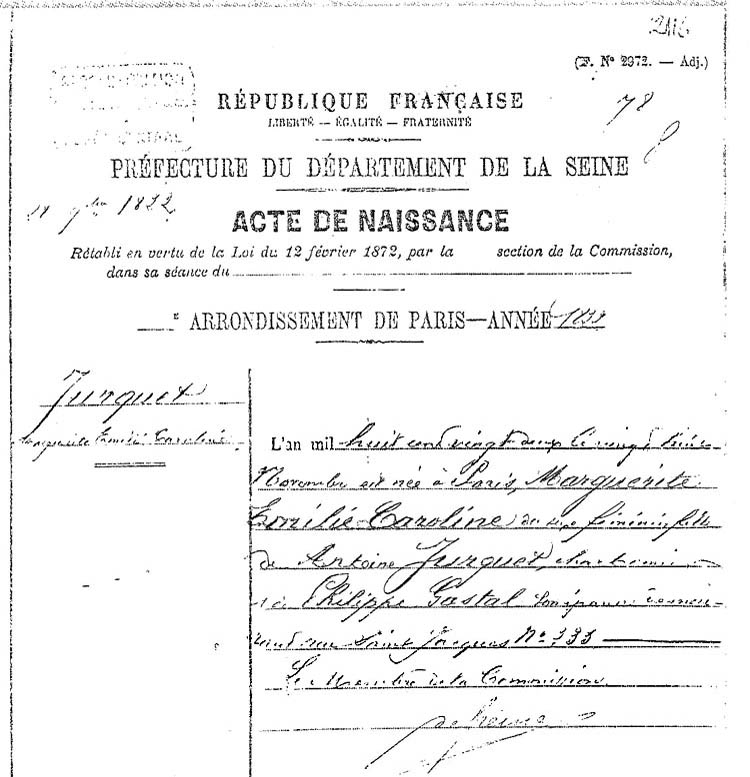 (F. Nº 2972. — Adj.)
RÉPUBLIQUE FRANÇAISE
78
LIBERTÉ — ÉGALITÉ — FRATERNITÉ
PRÉFECTURE DU DÉPARTEMENT DE LA SEINE
9bre 1822
ACTE DE NAISSANCE
Rétabli en vertu de la Loi du 12 février 1872, par la section de la Commission,
dans sa séance du
e ARRONDISSEMENT DE PARIS—ANNÉE 1822
Jurquet
Marguerite Emilie Caroline
L'an mil huit cent vingt deux le vingt
Novembre est née à Paris, Marguerite
Emilie Caroline du sexe féminin fille
de Antoine Jurquet, charbonnier
Philippe Gastal son épouse demeu-
rant rue Saint Jacques Nº 333
Le Membre de la Commission